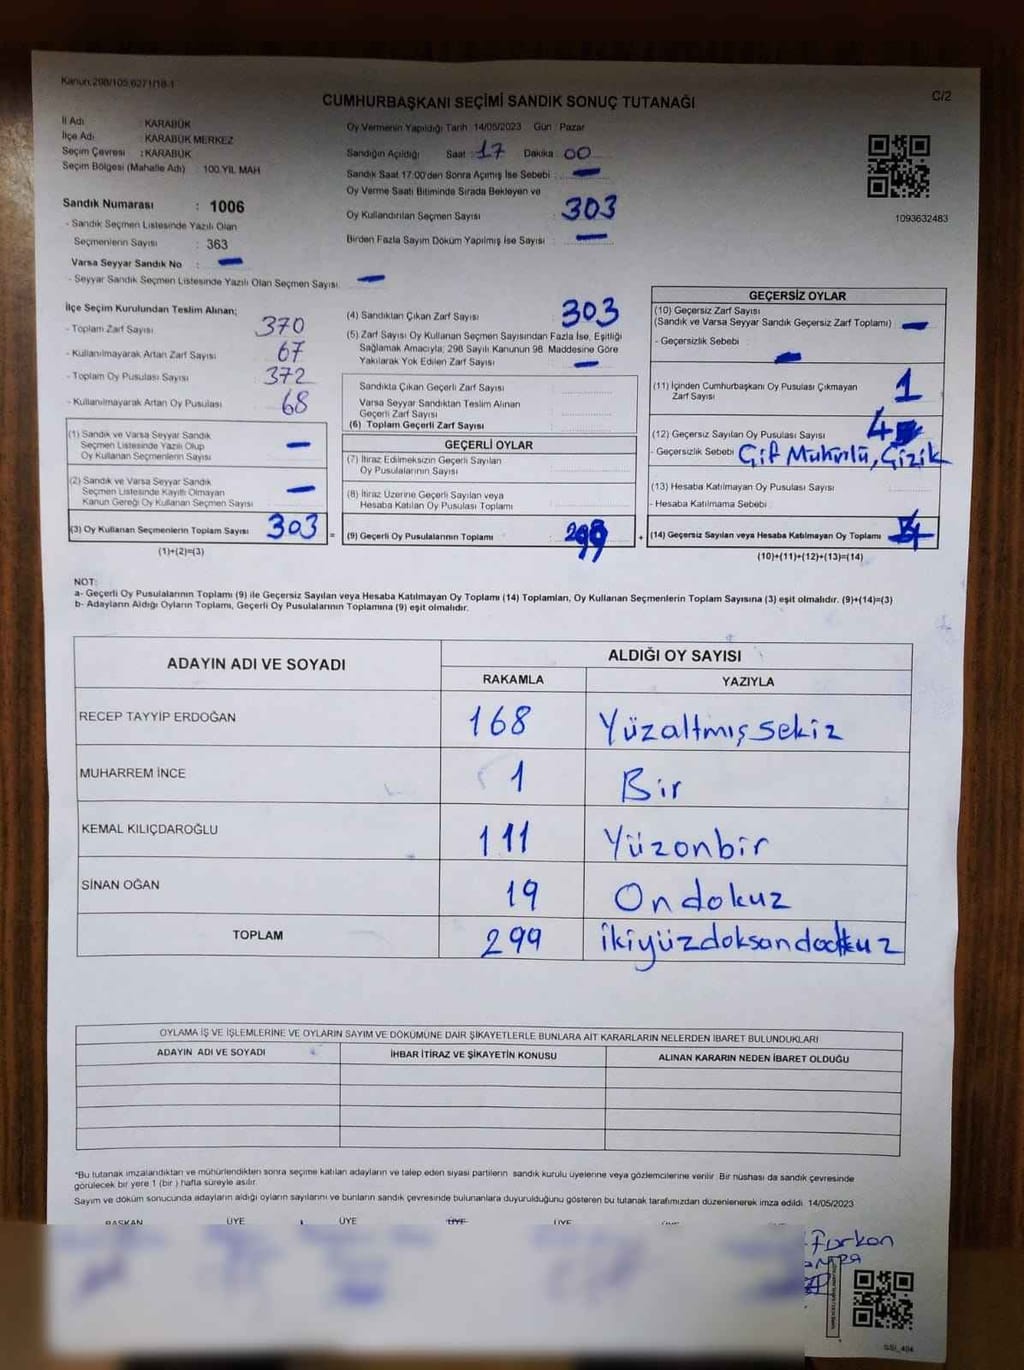 Kanun:298/105,6271/18-1
C/2
CUMHURBAŞKANI SEÇİMİ SANDIK SONUÇ TUTANAĞI
İl Adı : KARABÜK
İlçe Adı : KARABÜK MERKEZ
Seçim Çevresi : KARABÜK
Seçim Bölgesi (Mahalle Adı) : 100.YIL MAH
Sandık Numarası : 1006
- Sandık Seçmen Listesinde Yazılı Olan
Seçmenlerin Sayısı : 363
Varsa Seyyar Sandık No : —
- Seyyar Sandık Seçmen Listesinde Yazılı Olan Seçmen Sayısı: —
Oy Vermenin Yapıldığı Tarih :14/05/2023 Gün : Pazar
Sandığın Açıldığı Saat : 17 Dakika : 00
Sandık Saat 17:00'den Sonra Açılmış İse Sebebi : —
Oy Verme Saati Bitiminde Sırada Bekleyen ve
Oy Kullandırılan Seçmen Sayısı : 303
Birden Fazla Sayım Döküm Yapılmış İse Sayısı : —
1093632483
İlçe Seçim Kurulundan Teslim Alınan;
- Toplam Zarf Sayısı : 370
- Kullanılmayarak Artan Zarf Sayısı : 67
- Toplam Oy Pusulası Sayısı : 372
- Kullanılmayarak Artan Oy Pusulası : 68
(1) Sandık ve Varsa Seyyar Sandık
Seçmen Listesinde Yazılı Olup
Oy Kullanan Seçmenlerin Sayısı —
(2) Sandık ve Varsa Seyyar Sandık
Seçmen Listesinde Kayıtlı Olmayan
Kanun Gereği Oy Kullanan Seçmen Sayısı —
(3) Oy Kullanan Seçmenlerin Toplam Sayısı 303
(1)+(2)=(3)
=
(4) Sandıktan Çıkan Zarf Sayısı : 303
(5) Zarf Sayısı Oy Kullanan Seçmen Sayısından Fazla İse, Eşitliği
Sağlamak Amacıyla; 298 Sayılı Kanunun 98. Maddesine Göre
Yakılarak Yok Edilen Zarf Sayısı : —
Sandıkta Çıkan Geçerli Zarf Sayısı :
Varsa Seyyar Sandıktan Teslim Alınan
Geçerli Zarf Sayısı :
(6) Toplam Geçerli Zarf Sayısı :
GEÇERLİ OYLAR
(7) İtiraz Edilmeksizin Geçerli Sayılan
Oy Pusulalarının Sayısı :
(8) İtiraz Üzerine Geçerli Sayılan veya
Hesaba Katılan Oy Pusulası Toplamı :
(9) Geçerli Oy Pusulalarının Toplamı
+
GEÇERSİZ OYLAR
(10) Geçersiz Zarf Sayısı
(Sandık ve Varsa Seyyar Sandık Geçersiz Zarf Toplamı) : —
- Geçersizlik Sebebi : —
(11) İçinden Cumhurbaşkanı Oy Pusulası Çıkmayan
Zarf Sayısı 1
(12) Geçersiz Sayılan Oy Pusulası Sayısı 4
- Geçersizlik Sebebi : Çift Mühürlü, Çizik
(13) Hesaba Katılmayan Oy Pusulası Sayısı
- Hesaba Katılmama Sebebi :
(14) Geçersiz Sayılan veya Hesaba Katılmayan Oy Toplamı
(10)+(11)+(12)+(13)=(14)
NOT:
a- Geçerli Oy Pusulalarının Toplamı (9) ile Geçersiz Sayılan veya Hesaba Katılmayan Oy Toplamı (14) Toplamları, Oy Kullanan Seçmenlerin Toplam Sayısına (3) eşit olmalıdır. (9)+(14)=(3)
b- Adayların Aldığı Oyların Toplamı, Geçerli Oy Pusulalarının Toplamına (9) eşit olmalıdır.
ADAYIN ADI VE SOYADI ALDIĞI OY SAYISI
RAKAMLA YAZIYLA
RECEP TAYYİP ERDOĞAN 168 Yüzaltmışsekiz
MUHARREM İNCE 1 Bir
KEMAL KILIÇDAROĞLU 111 Yüzonbir
SİNAN OĞAN 19 Ondokuz
TOPLAM 299 ikiyüzdoksandokuz
OYLAMA İŞ VE İŞLEMLERİNE VE OYLARIN SAYIM VE DÖKÜMÜNE DAİR ŞİKAYETLERLE BUNLARA AİT KARARLARIN NELERDEN İBARET BULUNDUKLARI
ADAYIN ADI VE SOYADI İHBAR İTİRAZ VE ŞİKAYETİN KONUSU ALINAN KARARIN NEDEN İBARET OLDUĞU
*Bu tutanak imzalandıktan ve mühürlendikten sonra seçime katılan adayların ve talep eden siyasi partilerin sandık kurulu üyelerine veya gözlemcilerine verilir. Bir nüshası da sandık çevresinde
görülecek bir yere 1 (bir ) hafta süreyle asılır.
Sayım ve döküm sonucunda adayların aldığı oyların sayılarını ve bunların sandık çevresinde bulunanlara duyurulduğunu gösteren bu tutanak tarafımızdan düzenlenerek imza edildi. 14/05/2023
BAŞKAN ÜYE ÜYE ÜYE ÜYE
Furkan